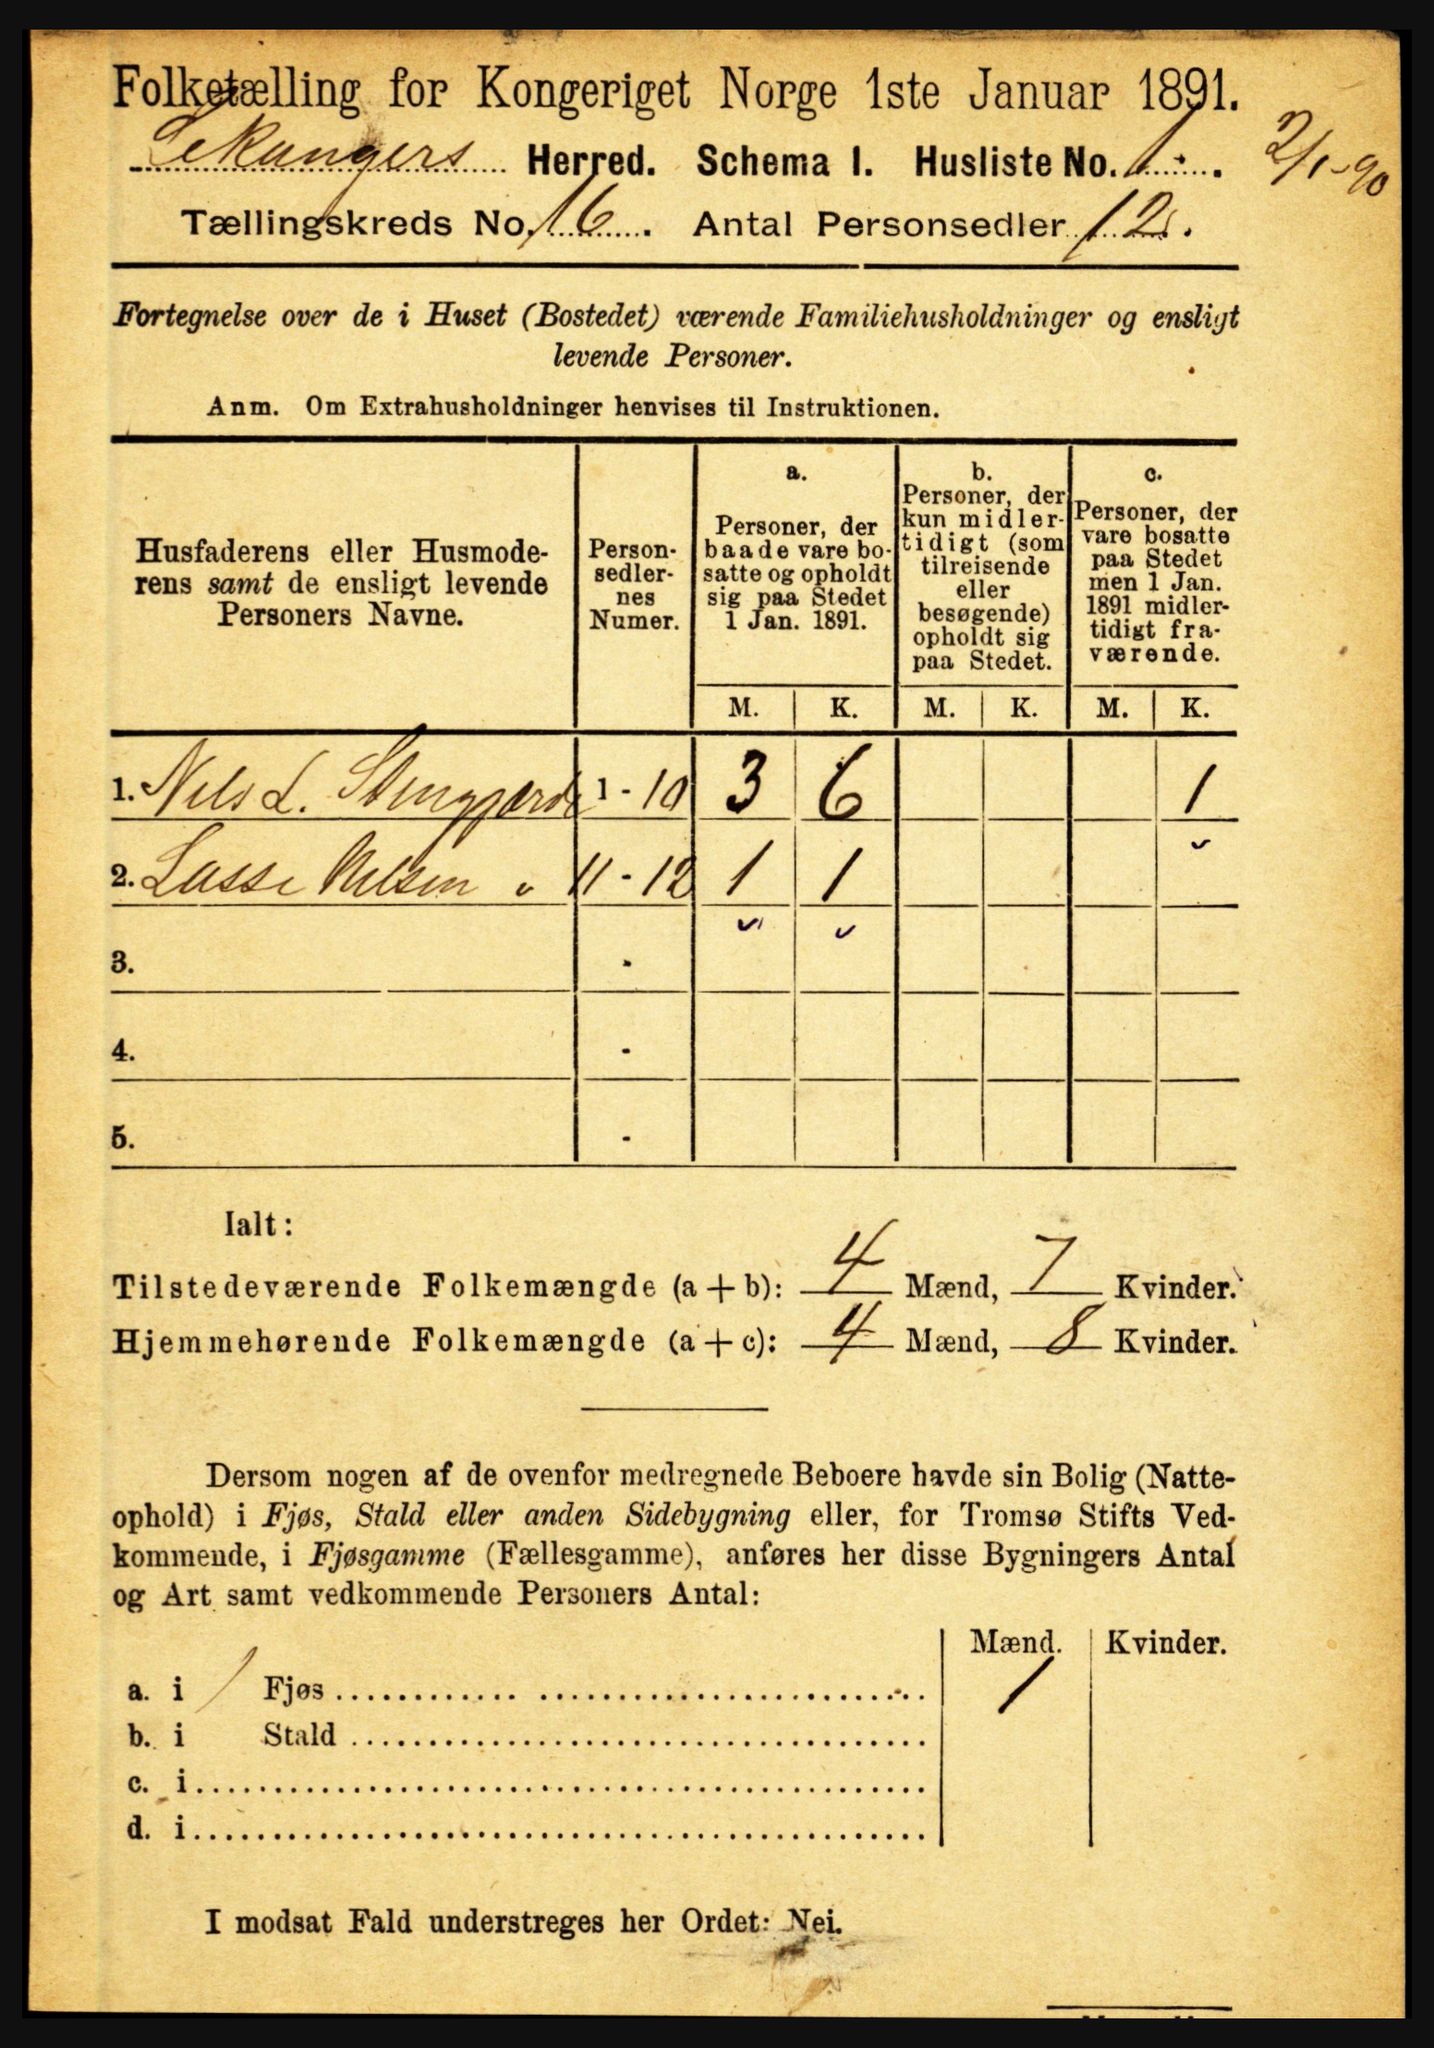 Folketælling for Kongeriget Norge 1ste Januar 1891.
Lekangers Herred. Schema I. Husliste No. 1.
2/1-90
Tællingskreds No. 16. Antal Personsedler 12.
Fortegnelse over de i Huset (Bostedet) værende Familiehusholdninger og ensligt
levende Personer.
Anm. Om Extrahusholdninger henvises til Instruktionen.
Husfaderens eller Husmode-
rens samt de ensligt levende
Personers Navne.
Person-
sedler-
nes
Numer.
a.
Personer, der
baade vare bo-
satte og opholdt
sig paa Stedet
1 Jan. 1891.
b.
Personer, der
kun midler-
tidigt (som
tilreisende
eller
besøgende)
opholdt sig
paa Stedet.
c.
Personer, der
vare bosatte
paa Stedet
men 1 Jan.
1891 midler-
tidigt fra-
værende.
M. K. M. K. M. K.
1. Nils L. 1 - 10 3 6 1
2. Lasse Nilsen 11 - 12 1 1
3. -
4. -
5. -
Ialt:
Tilstedeværende Folkemængde (a + b): 4 Mænd, 7 Kvinder.
Hjemmehørende Folkemængde (a + c): 4 Mænd, 8 Kvinder.
Dersom nogen af de ovenfor medregnede Beboere havde sin Bolig (Natte-
ophold) i Fjøs, Stald eller anden Sidebygning eller, for Tromsø Stifts Ved-
kommende, i Fjøsgamme (Fællesgamme), anføres her disse Bygningers Antal
og Art samt vedkommende Personers Antal:
Mænd. Kvinder.
a. i 1 Fjøs 1
b. i Stald
c. i
d. i
I modsat Fald understreges her Ordet: Nei.